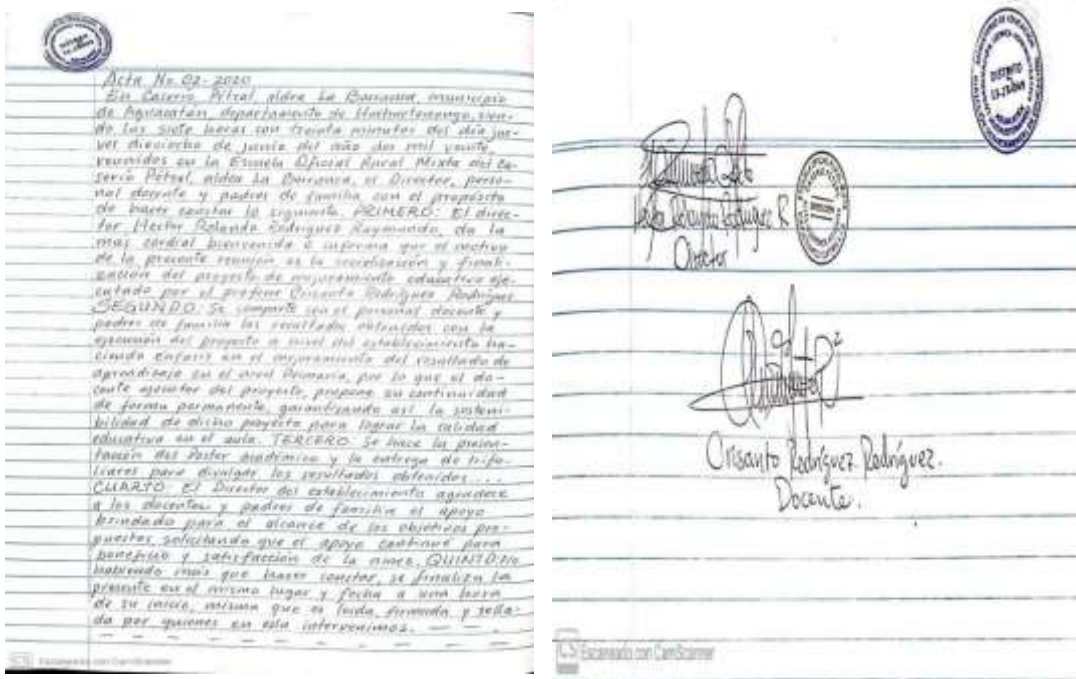 Acta No. 02-2020
En Caserio Petzal, aldea La Barranca, municipio
de Aguacatán, departamento de Huehuetenango, sien-
do las siete horas con treinta minutos del día jue-
ves dieciocho de junio del año dos mil veinte,
reunidos en la Escuela Oficial Rural Mixta del Ca-
serio Petzal, aldea La Barranca, el Director, perso-
nal docente y padres de familia con el propósito
de hacer constar lo siguiente. PRIMERO: El direc-
tor Hector Rolando Rodriguez Raymundo, da la
mas cordial bienvenida e informa que el motivo
de la presente reunión es la socialización y finali-
zación del proyecto de mejoramiento educativo eje-
cutado por el profesor Crisanto Rodríguez Rodríguez
SEGUNDO: Se comparte con el personal docente y
padres de familia los resultados obtenidos con la
ejecución del proyecto a nivel del establecimiento ha-
ciendo énfasis en el mejoramiento del resultado de
aprendizaje en el nivel Primaria, por lo que el do-
cente ejecutor del proyecto, propone su continuidad
de forma permanente, garantizando así la sosteni-
bilidad de dicho proyecto para lograr la calidad
educativa en el aula. TERCERO: Se hace la presen-
tación del Poster académico y la entrega de trifo-
liares para divulgar los resultados obtenidos...
CUARTO: El Director del establecimiento agradece
a los docentes y padres de familia el apoyo
brindado para el alcance de los objetivos pro-
puestos, solicitando que el apoyo continué para
beneficio y satisfacción de la niñez. QUINTO: No
habiendo más que hacer constar, se finaliza la
presente en el mismo lugar y fecha a una hora
de su inicio, misma que es leída, firmada y sella-
da por quienes en ella intervenimos.
CS Escaneado con CamScanner
DISTRITO
Rodríguez R
Director
Crisanto Rodríguez Rodríguez.
Docente.
CS Escaneado con CamScanner